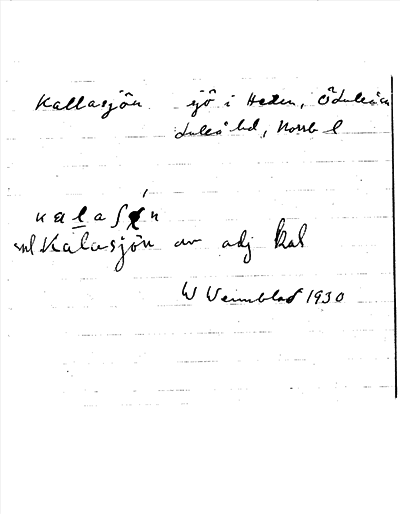 Kallasjön sjö i Heden, ÖLuleå sn
Luleå hd, Norrb l
kalaʃøn
vnl Kalasjön av adj kal
W Wennblad 1930